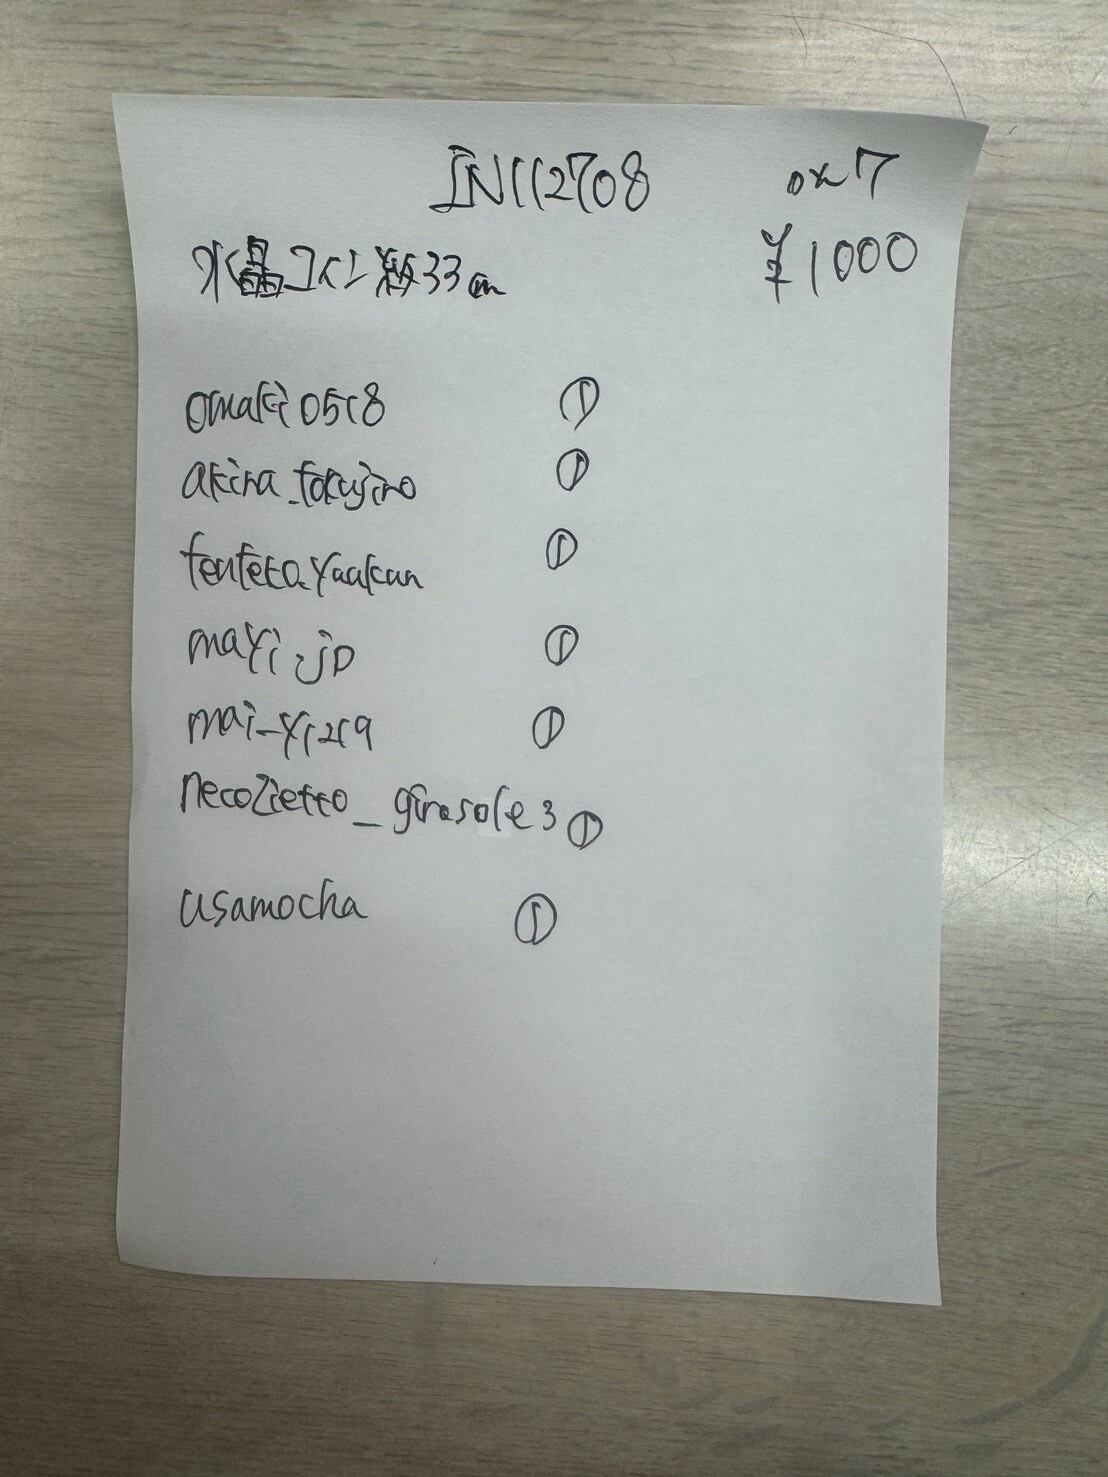 IN112708 ox7
水晶コイン 33cm ¥1000
omaki0518 ①
akira_tokujiro ①
tenteto_yaakun ①
mayi.jp ①
mai_y1219 ①
necozietto_girasole3 ①
usamocha ①